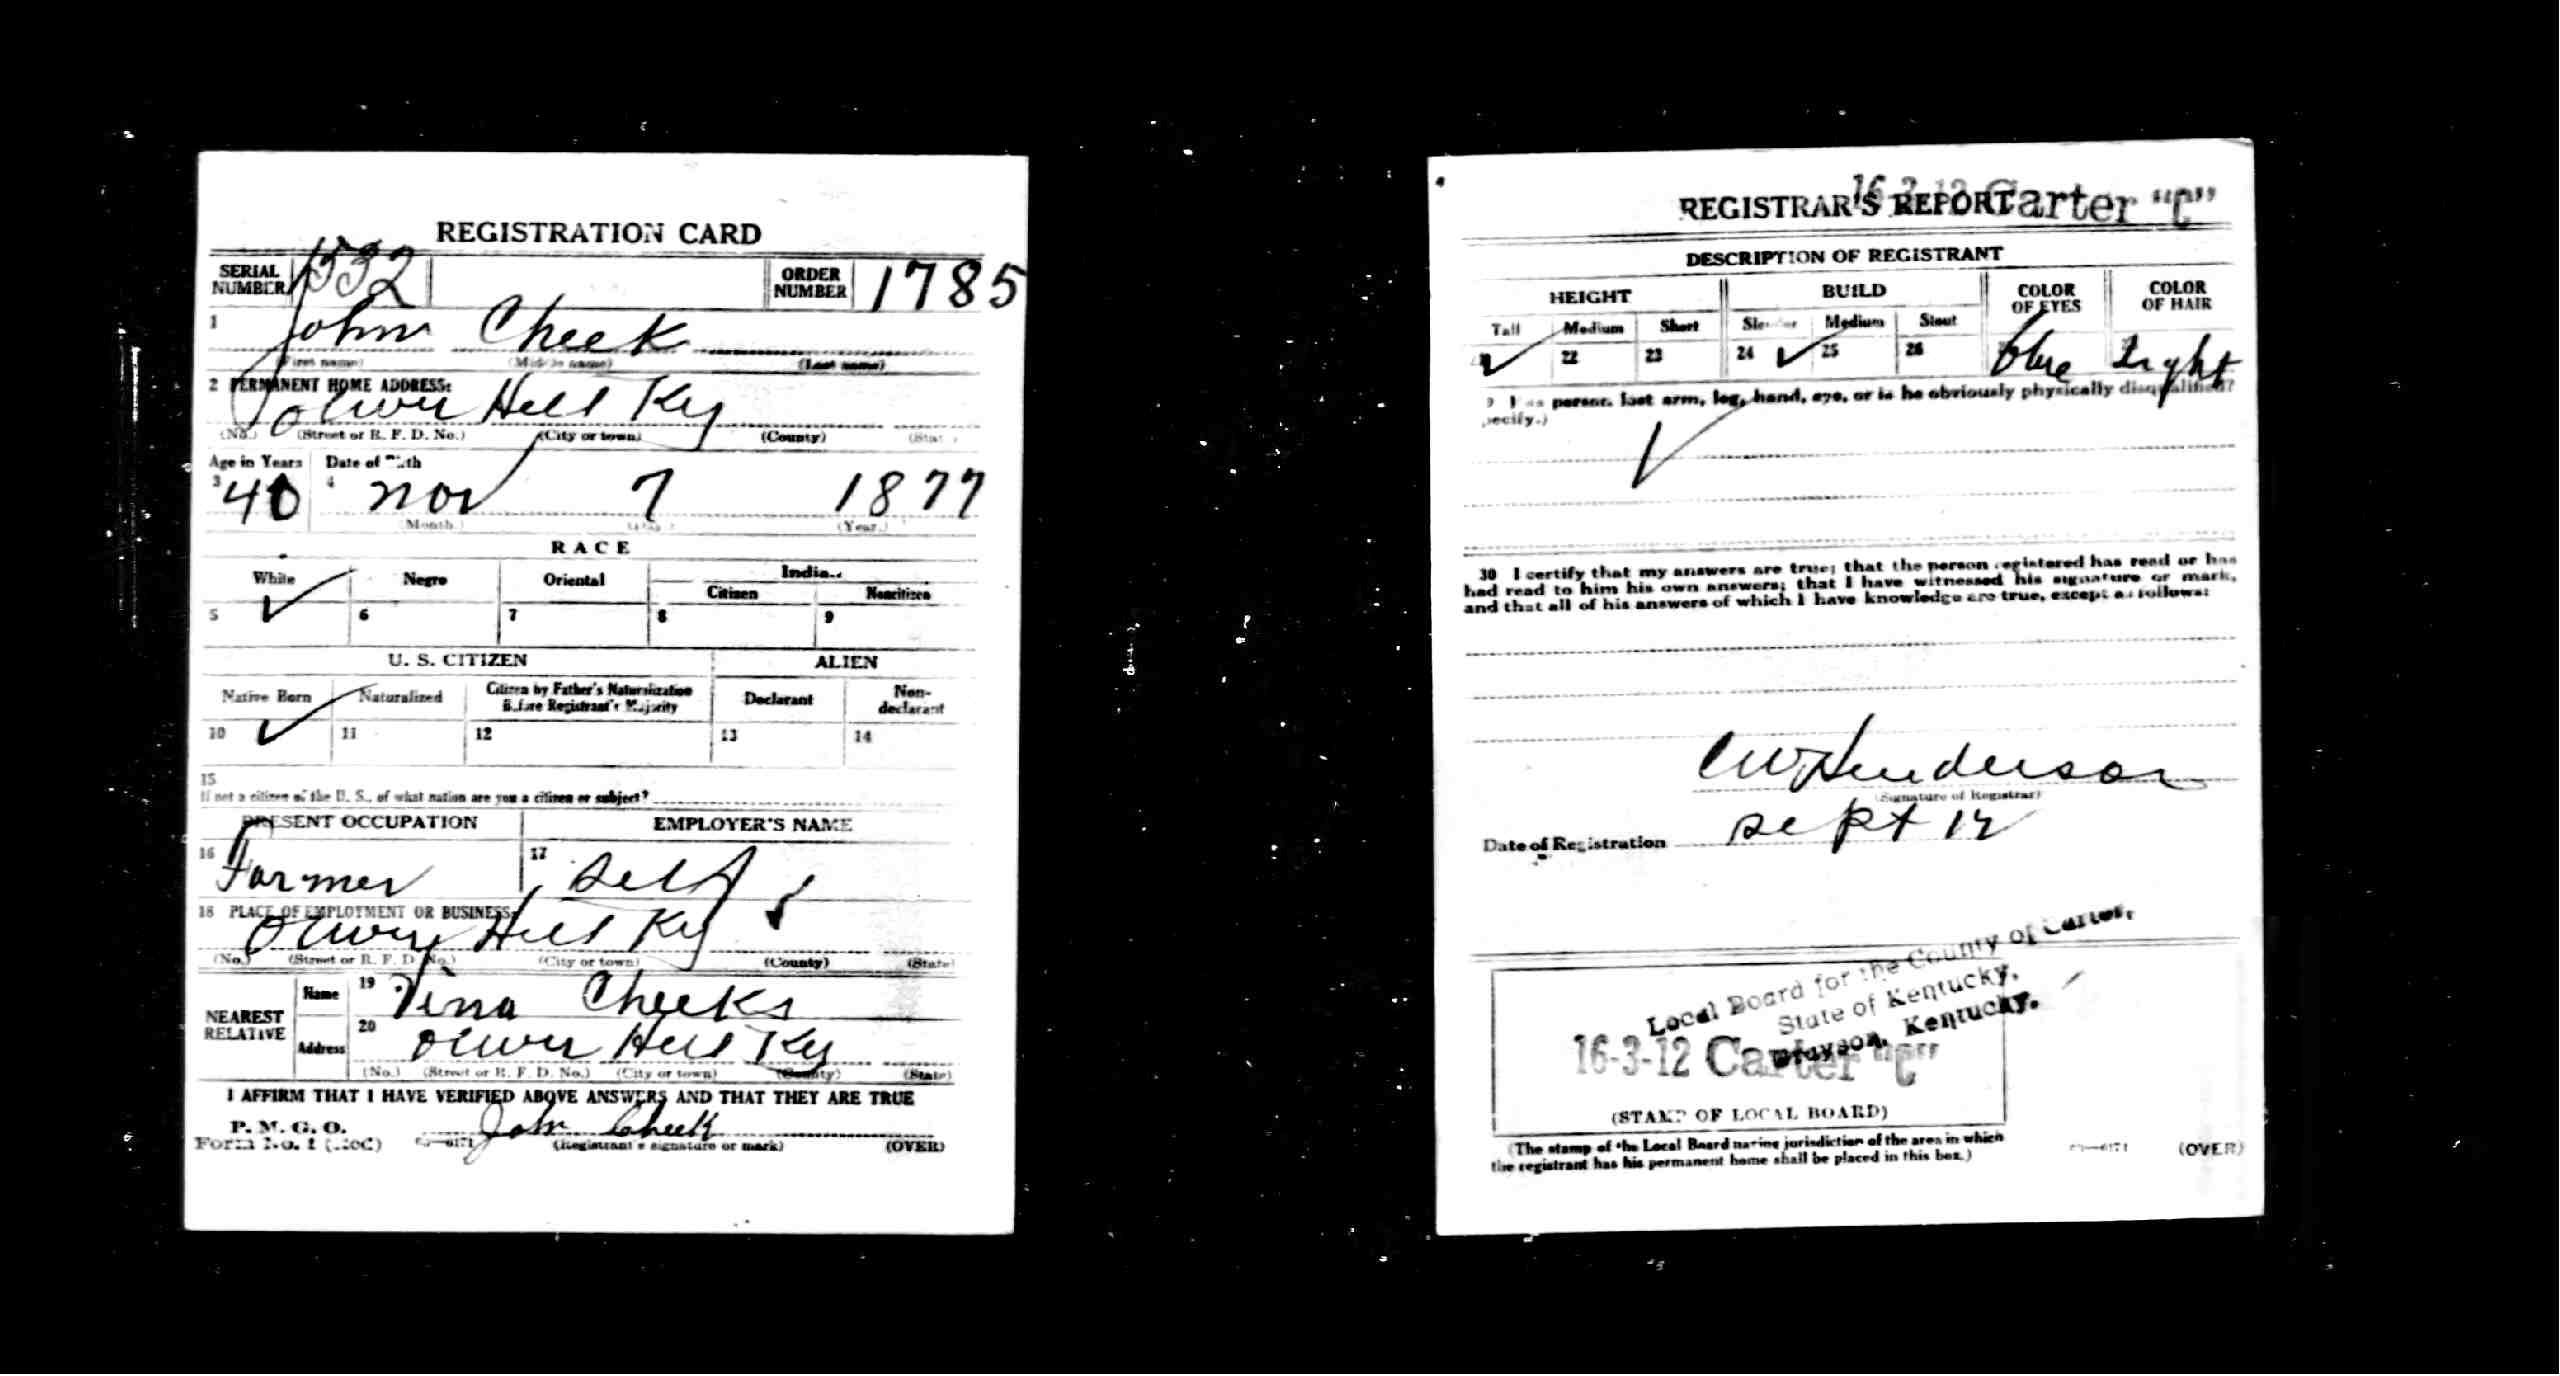 REGISTRATION CARD
SERIAL NUMBER 1532 ORDER NUMBER 1785
1 John Cheek
(First name) (Middle name) (Last name)
2 PERMANENT HOME ADDRESS:
Oliver Hill Ky
(No.) (Street or R. F. D. No.) (City or town) (County) (State)
Age in Years Date of Birth
3 40 4 Nov 7 1877
(Month.) (Day.) (Year.)
RACE
White Negro Oriental Indian
Citizen Noncitizen
5 ✓ 6 7 8 9
U. S. CITIZEN ALIEN
Native Born Naturalized Citizen by Father's Naturalization Before Registrant's Majority Declarant Non-declarant
10 ✓ 11 12 13 14
15
If not a citizen of the U. S., of what nation are you a citizen or subject?
PRESENT OCCUPATION EMPLOYER'S NAME
16 Farmer 17 Self
18 PLACE OF EMPLOYMENT OR BUSINESS:
Oliver Hill Ky
(No.) (Street or R. F. D. No.) (City or town) (County) (State)
NEAREST RELATIVE Name 19 Vina Cheeks
Address 20 Oliver Hill Ky
(No.) (Street or R. F. D. No.) (City or town) (County) (State)
I AFFIRM THAT I HAVE VERIFIED ABOVE ANSWERS AND THAT THEY ARE TRUE
P. M. G. O.
Form No. 1 (Red) John Cheek
(Registrant's signature or mark) (OVER)
REGISTRAR'S REPORT
16-3-12 Carter "C"
DESCRIPTION OF REGISTRANT
HEIGHT BUILD COLOR OF EYES COLOR OF HAIR
Tall Medium Short Slender Medium Stout
✓ 22 23 24 ✓ 25 26 blue Light
Has person lost arm, leg, hand, eye, or is he obviously physically disqualified?
(Specify.)
✓
30 I certify that my answers are true; that the person registered has read or has
had read to him his own answers; that I have witnessed his signature or mark,
and that all of his answers of which I have knowledge are true, except as follows:
C W Henderson
(Signature of Registrar)
Date of Registration Sept 12
Local Board for the County of Carter,
State of Kentucky,
Grayson, Kentucky.
16-3-12 Carter "C"
(STAMP OF LOCAL BOARD)
(The stamp of the Local Board having jurisdiction of the area in which
the registrant has his permanent home shall be placed in this box.)
(OVER)